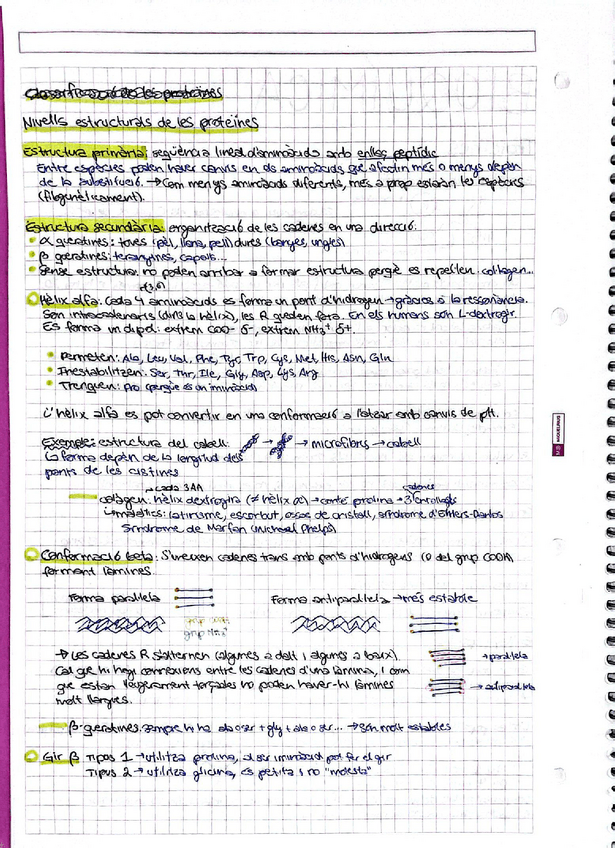 Nivells estructurals de les proteïnes
Estructura primària: seqüència lineal d'aminoàcids amb enllaç peptídic
Entre espècies poden haver canvis en els aminoàcids que afectin més o menys depèn
de la substitució. → Com menys aminoàcids diferents, més a prop estaran les espècies
(filogenèticament).
Estructura secundària: organització de les cadenes en una direcció.
α queratines: toves (pèl, llana, pell) dures (banyes, ungles)
β queratines: teranyines, capolls...
Sense estructura: no poden arribar a formar estructura perquè es repel·len. col·lagen...
Hèlix alfa: Cada 4 aminoàcids es forma un pont d'hidrogen → gràcies a la ressonància.
Són intracatenaris (dins la hèlix), les R queden fora. En els humans són L-dextrogir.
Es forma un dipol: extrem COO- δ-, extrem NH3+ δ+.
Permeten: Ala, Leu, Val, Phe, Tyr, Trp, Cys, Met, His, Asn, Gln
Inestabilitzen: Ser, Thr, Ile, Gly, Asp, Lys, Arg
Trenquen: Pro (perquè és un iminoàcid)
L'hèlix alfa es pot convertir en una conformació a l'atzar amb canvis de pH.
Exemple: estructura del cabell: → → microfibres → cabell
La forma depèn de la longitud dels
ponts de les cistines
cada 3AA cadenes
colagen: hèlix dextrogira (≠ hèlix α) → conté prolina → 3 enrollades
malalties: latirisme, escorbut, ossos de cristall, síndrome d'Ehlers-Danlos
Síndrome de Marfan (Michael Phelps)
Conformació beta: S'uneixen cadenes trans amb ponts d'hidrogens (O del grup COOH)
formant làmines.
Forma paral·lela Forma antiparal·lela → més estable
→ Les cadenes R s'alternen (algunes a dalt i algunes a baix).
Cal que hi hagi connexions entre les cadenes d'una làmina, i com → paral·lela
que estan lleugerament torçades no poden haver-hi làmines → antiparal·lela
molt llargues.
β-queratines: sempre hi ha ala o ser + gly + ala o ser... → són molt estables
Gir β Tipus 1 → utilitza prolina, al ser iminoàcid pot fer el gir
Tipus 2 → utilitza glicina, és petita i no "molesta"
MIQUELRIUS